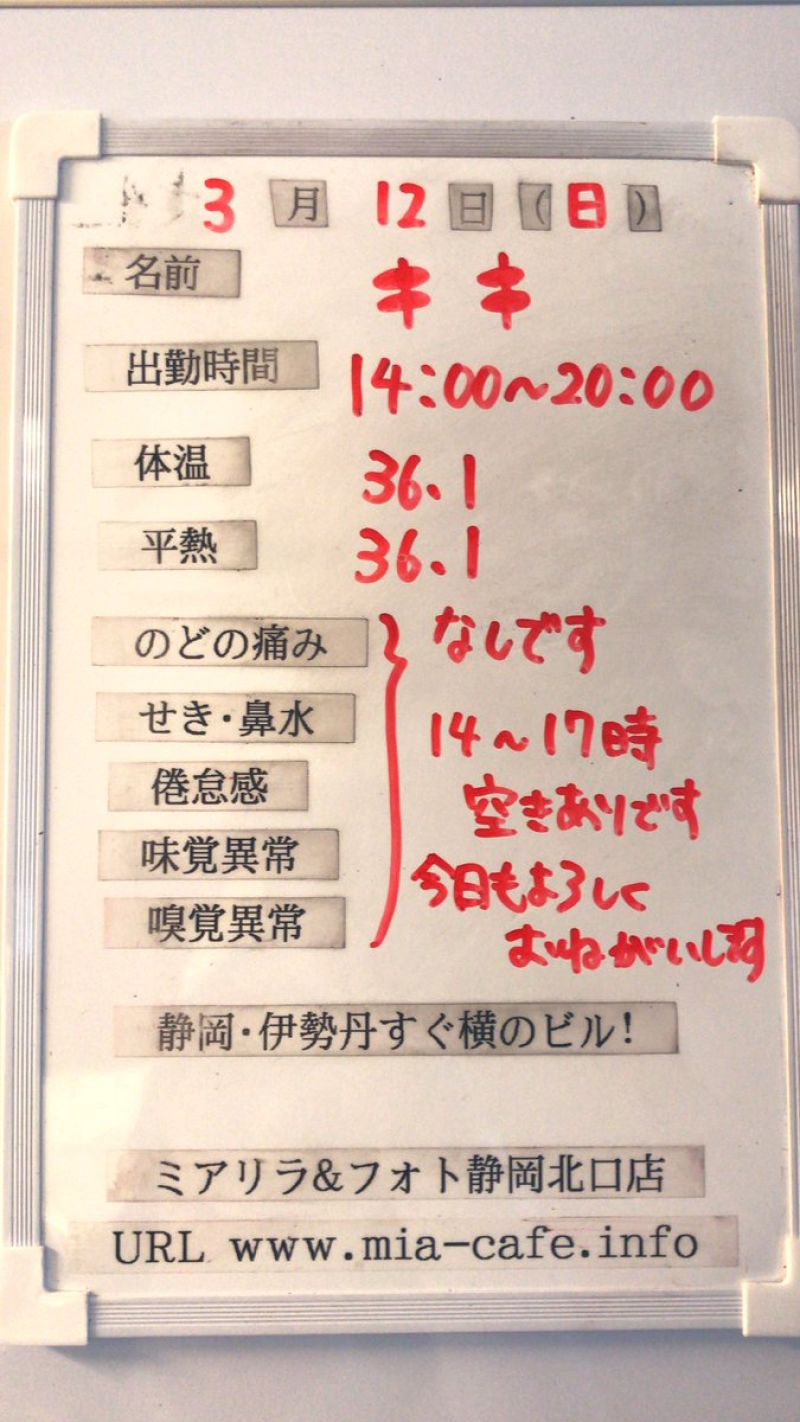 3月12日(日)
名前 キキ
出勤時間 14:00~20:00
体温 36.1
平熱 36.1
のどの痛み なしです
せき・鼻水 14~17時
倦怠感 空きありです
味覚異常 今日もよろしく
嗅覚異常 おねがいします
静岡・伊勢丹すぐ横のビル!
ミアリラ&フォト静岡北口店
URL www.mia-cafe.info